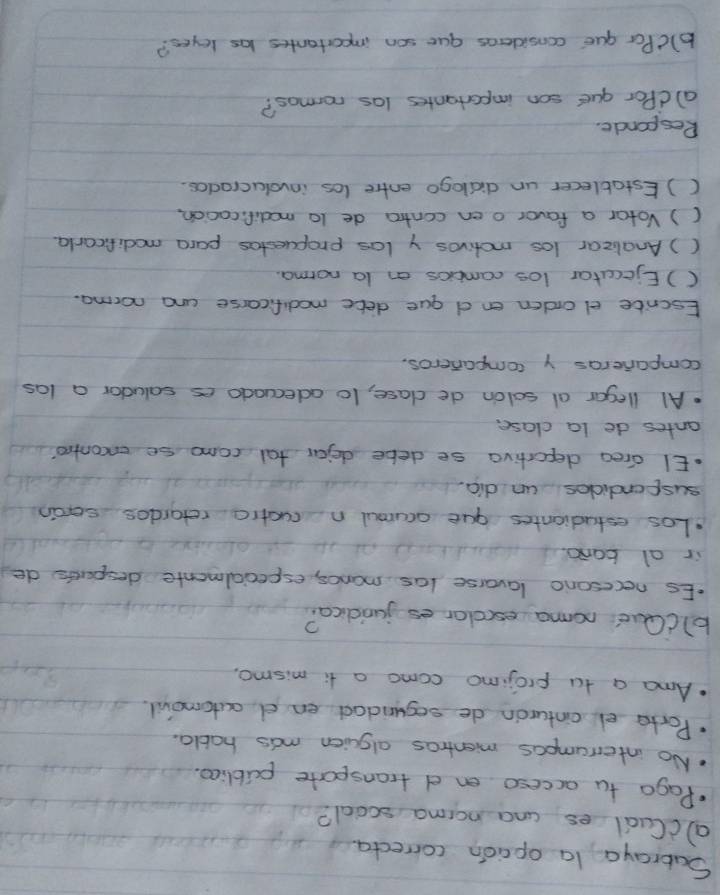 Subraya la opción correcta.
a) ¿Cuál es una norma social?
• Paga tu acceso en el transporte público.
• No interrumpas mientras alguien más habla.
• Porta el cinturón de seguridad en el automóvil.
• Ama a tu prójimo como a ti mismo.
b) ¿Qué norma escolar es jurídica?
• Es necesario lavarse las manos, especialmente después de
ir al baño.
• Los estudiantes que acumulen cuatro retardos serán
suspendidos un día.
• El área deportiva se debe dejar tal como se encontró
antes de la clase.
• Al llegar al salón de clase, lo adecuado es saludar a las
compañeras y compañeros.
Escribe el orden en el que debe modificarse una norma.
( ) Ejecutar los cambios en la norma.
( ) Analizar los motivos y las propuestas para modificarla.
( ) Votar a favor o en contra de la modificación.
( ) Establecer un diálogo entre los involucrados.
Responde.
a) ¿Por qué son importantes las normas?
b) ¿Por qué consideras que son importantes las leyes?